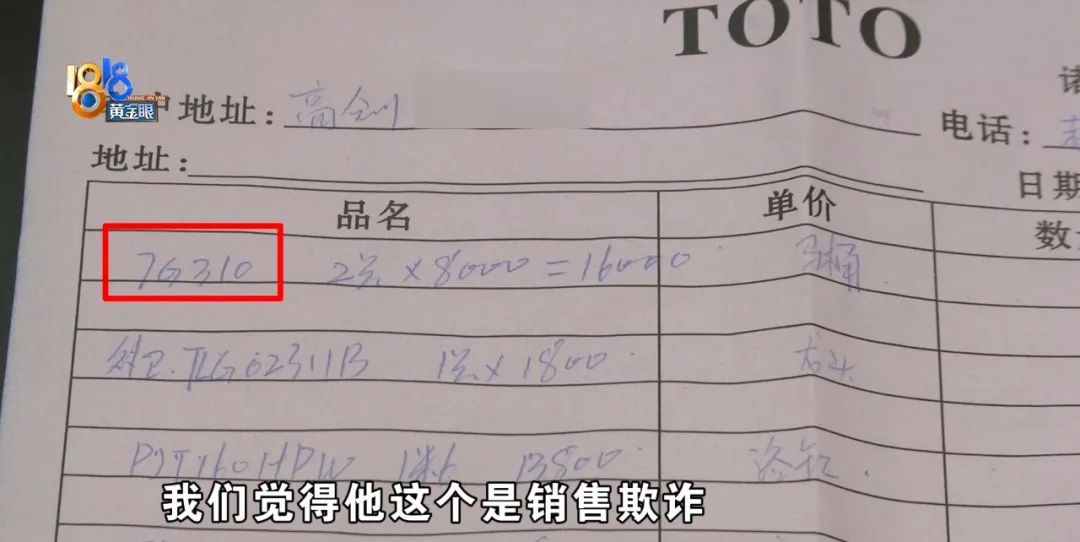 TOTO
1818
黄金眼
户地址：高剑
电话：
地址：
日期
品名 单价 数
7G310 2套×8000=16000 马桶
TLG02311B 1套×1800 龙头
1米6 13800 浴缸
我们觉得他这个是销售欺诈